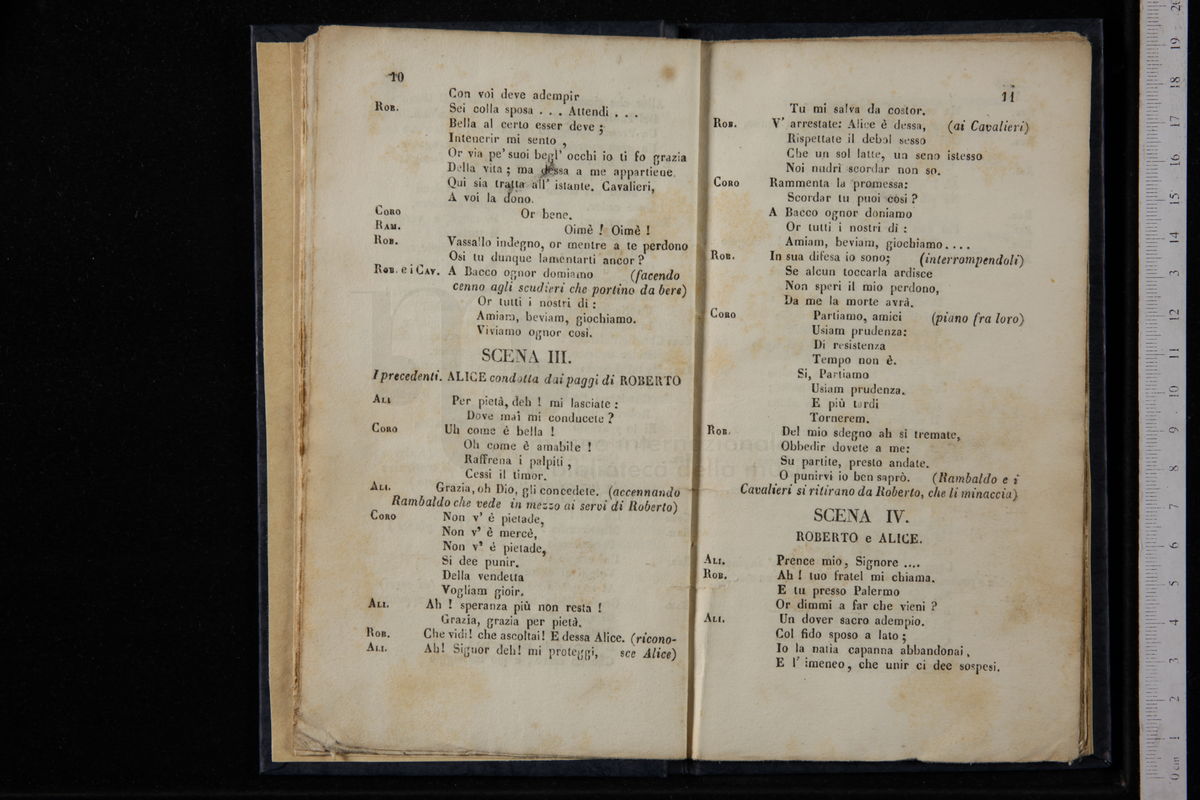 10
Con voi deve adempir
Rob. Sei colla sposa . . . Attendi . . .
Bella al certo esser deve ;
Intenerir mi sento ,
Or via pe' suoi begl' occhi io ti fo grazia
Della vita ; ma dessa a me appartiene.
Qui sia tratta all' istante. Cavalieri,
A voi la dono.
Coro Or bene.
Ram. Oimè ! Oimè !
Rob. Vassallo indegno, or mentre a te perdono
Osi tu dunque lamentarti ancor ?
Rob. e i Cav. A Bacco ognor domiamo (facendo
cenno agli scudieri che portino da bere)
Or tutti i nostri di :
Amiam, beviam, giochiamo.
Viviamo ognor così.
SCENA III.
I precedenti. ALICE condotta dai paggi di ROBERTO
Ali Per pietà, deh ! mi lasciate :
Dove mai mi conducete ?
Coro Uh come è bella !
Oh come è amabile !
Raffrena i palpiti ,
Cessi il timor.
Ali. Grazia, oh Dio, gli concedete. (accennando
Rambaldo che vede in mezzo ai servi di Roberto)
Coro Non v' è pietade,
Non v' è mercè,
Non v' è pietade,
Si dee punir.
Della vendetta
Vogliam gioir.
Ali. Ah ! speranza più non resta !
Grazia, grazia per pietà.
Rob. Che vidi! che ascoltai! E dessa Alice. (ricono-
Ali. Ah! Signor deh! mi proteggi, sce Alice)
11
Tu mi salva da costor.
Rob. V' arrestate: Alice è dessa, (ai Cavalieri)
Rispettate il debol sesso
Che un sol latte, un seno istesso
Noi nudrì scordar non so.
Coro Rammenta la promessa:
Scordar tu puoi così ?
A Bacco ognor doniamo
Or tutti i nostri dì :
Amiam, beviam, giochiamo . . . .
Rob. In sua difesa io sono; (interrompendoli)
Se alcun toccarla ardisce
Non speri il mio perdono,
Da me la morte avrà.
Coro Partiamo, amici (piano fra loro)
Usiam prudenza:
Di resistenza
Tempo non è.
Si, Partiamo
Usiam prudenza.
E più tardi
Tornerem.
Rob. Del mio sdegno ah si tremate,
Obbedir dovete a me:
Su partite, presto andate.
O punirvi io ben saprò. (Rambaldo e i
Cavalieri si ritirano da Roberto, che li minaccia)
SCENA IV.
ROBERTO e ALICE.
Ali. Prence mio, Signore ....
Rob. Ah ! tuo fratel mi chiama.
E tu presso Palermo
Or dimmi a far che vieni ?
Ali. Un dover sacro adempio.
Col fido sposo a lato ;
Io la natia capanna abbandonai,
E l' imeneo, che unir ci dee sospesi.